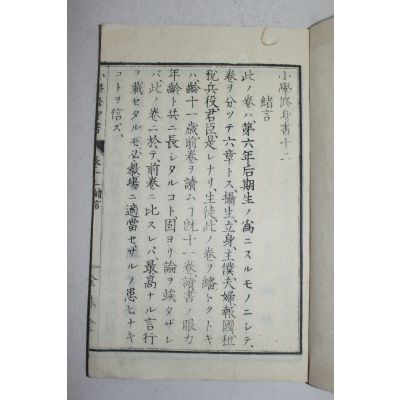 小學修身書十二
緒言
此ノ卷ハ第六年后期生ノ爲ニスルモノニシテ、
卷ヲ分ツテ六章トス攝生、立身、主僕夫婦報國租
稅兵役、君臣是レナリ、生徒、此ノ卷ヲ繙トクトキ
ハ、齡十一歲、前卷ヲ讀ムコ旣十一卷、讀書ノ眼力
年齡ト共ニ長シタルコト固ヨリ論ヲ竢タザレ
バ、此ノ卷ニ於テ、前卷ニ比スレバ、最高ナル言行
ヲ載セタルモ、必敎場ニ適當セザルノ患ヒナキ
コトヲ信ズ、
小學修身書 卷十二緒言